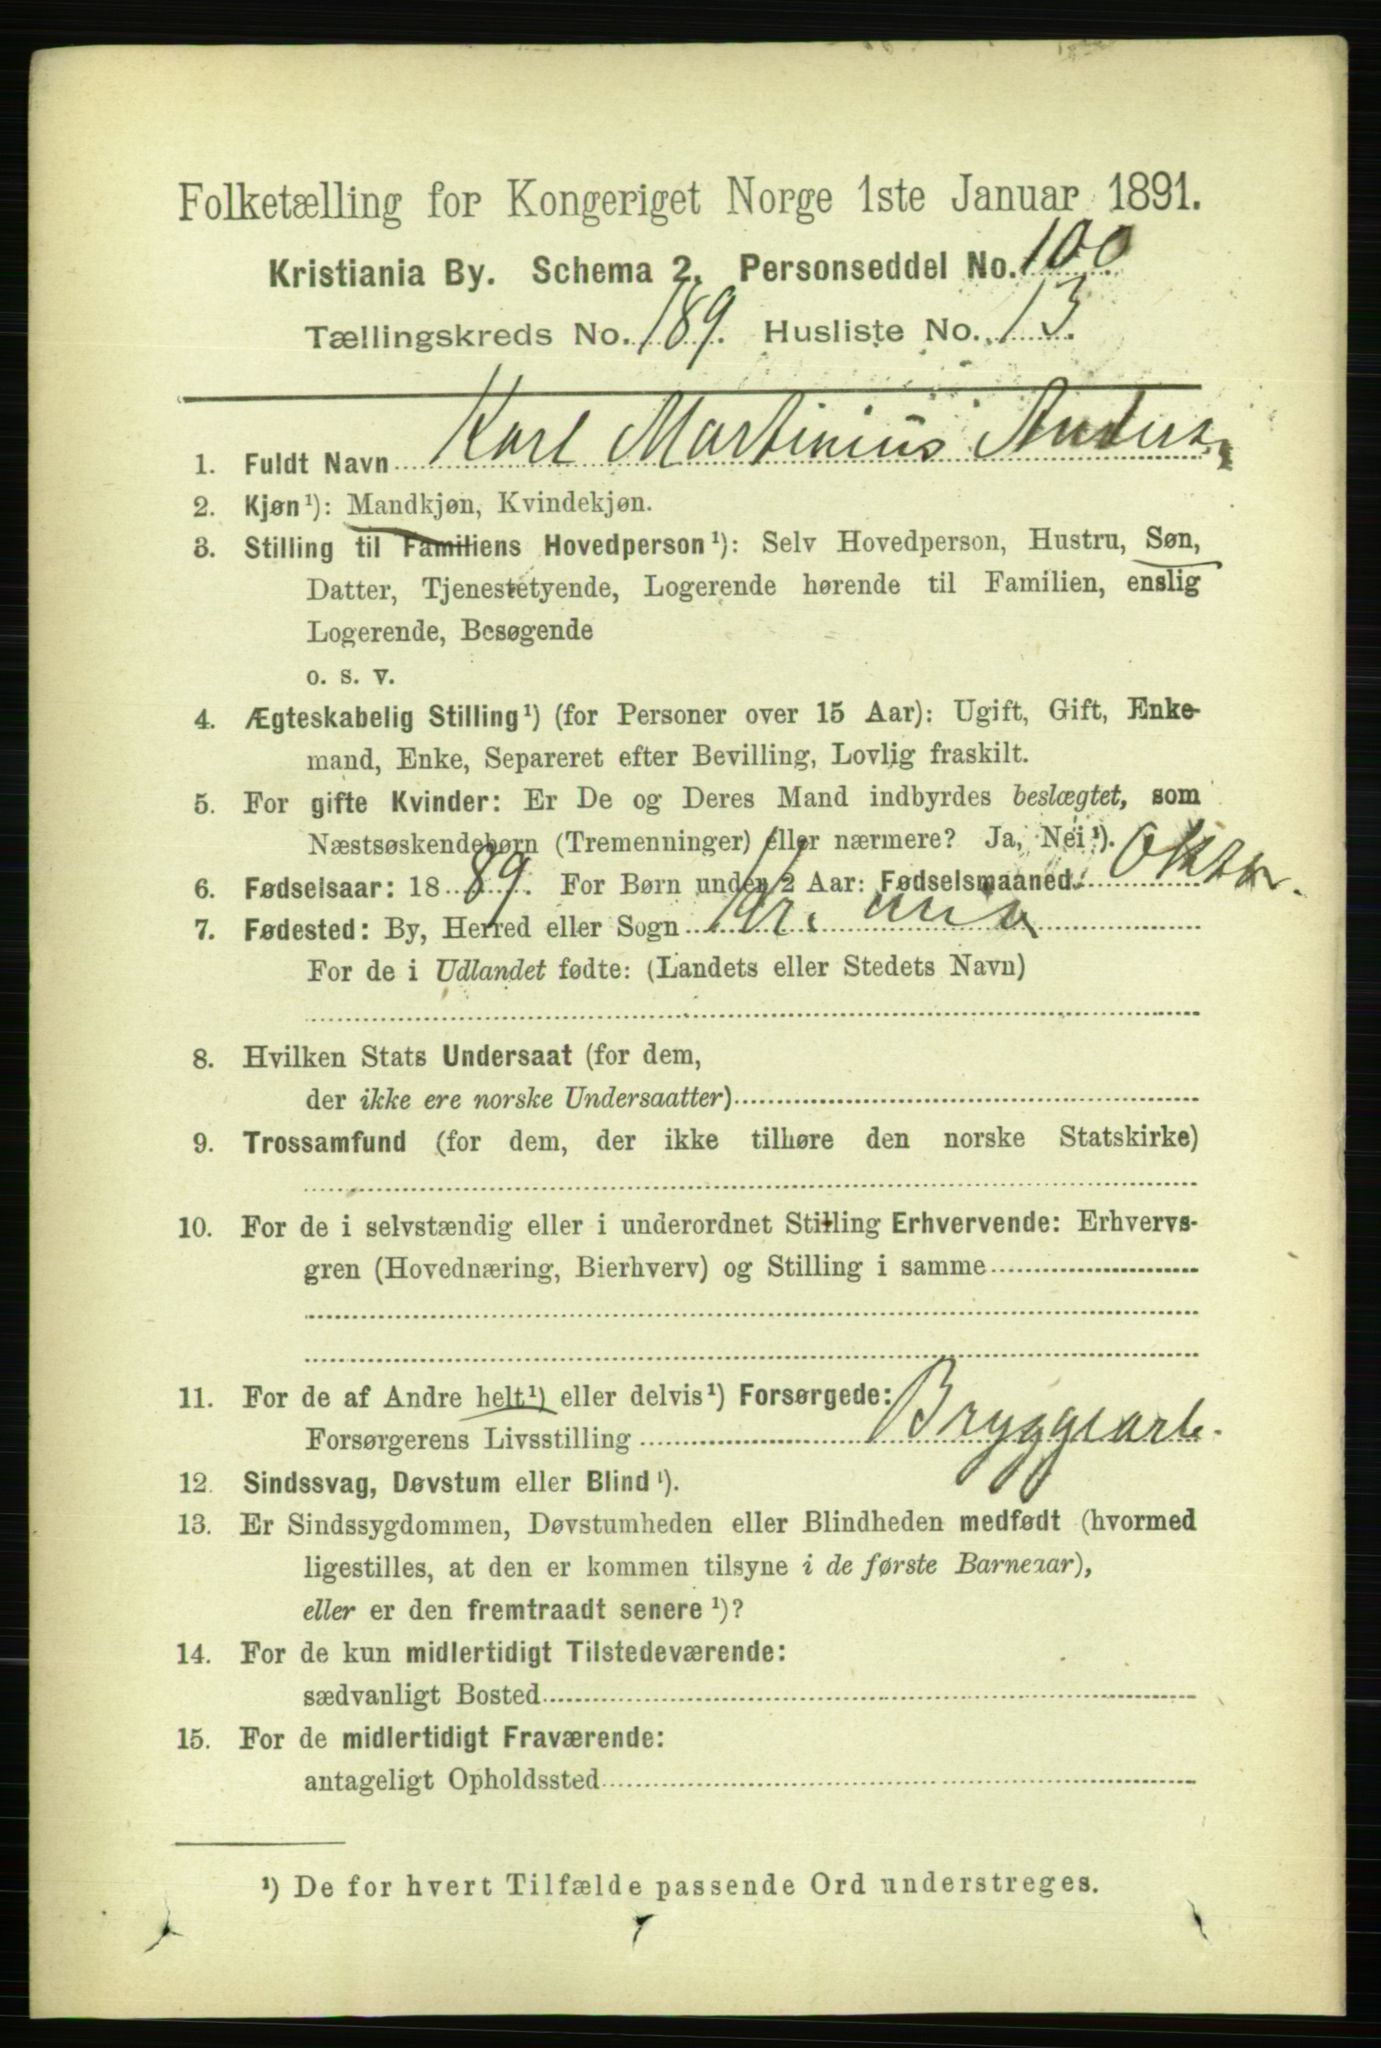 Folketælling for Kongeriget Norge 1ste Januar 1891.
Kristiania By. Schema 2. Personseddel No. 100
Tællingskreds No. 189. Husliste No. 13.
1. Fuldt Navn Karl Martinius Anders.
2. Kjøn¹): Mandkjøn, Kvindekjøn.
3. Stilling til Familiens Hovedperson¹): Selv Hovedperson, Hustru, Søn,
Datter, Tjenestetyende, Logerende hørende til Familien, enslig
Logerende, Besøgende
o. s. v.
4. Ægteskabelig Stilling¹) (for Personer over 15 Aar): Ugift, Gift, Enke-
mand, Enke, Separeret efter Bevilling, Lovlig fraskilt.
5. For gifte Kvinder: Er De og Deres Mand indbyrdes beslægtet, som
Næstsøskendebørn (Tremenninger) eller nærmere? Ja, Nei¹).
6. Fødselsaar: 1889. For Børn under 2 Aar: Fødselsmaaned Oktbr.
7. Fødested: By, Herred eller Sogn Kr.ania
For de i Udlandet fødte: (Landets eller Stedets Navn)
8. Hvilken Stats Undersaat (for dem,
der ikke ere norske Undersaatter)
9. Trossamfund (for dem, der ikke tilhøre den norske Statskirke)
10. For de i selvstændig eller i underordnet Stilling Erhvervende: Erhvervs-
gren (Hovednæring, Bierhverv) og Stilling i samme
11. For de af Andre helt¹) eller delvis¹) Forsørgede:
Forsørgerens Livsstilling Bryggearb.
12. Sindssvag, Døvstum eller Blind¹).
13. Er Sindssygdommen, Døvstumheden eller Blindheden medfødt (hvormed
ligestilles, at den er kommen tilsyne i de første Barneaar),
eller er den fremtraadt senere¹)?
14. For de kun midlertidigt Tilstedeværende:
sædvanligt Bosted
15. For de midlertidigt Fraværende:
antageligt Opholdssted
¹) De for hvert Tilfælde passende Ord understreges.